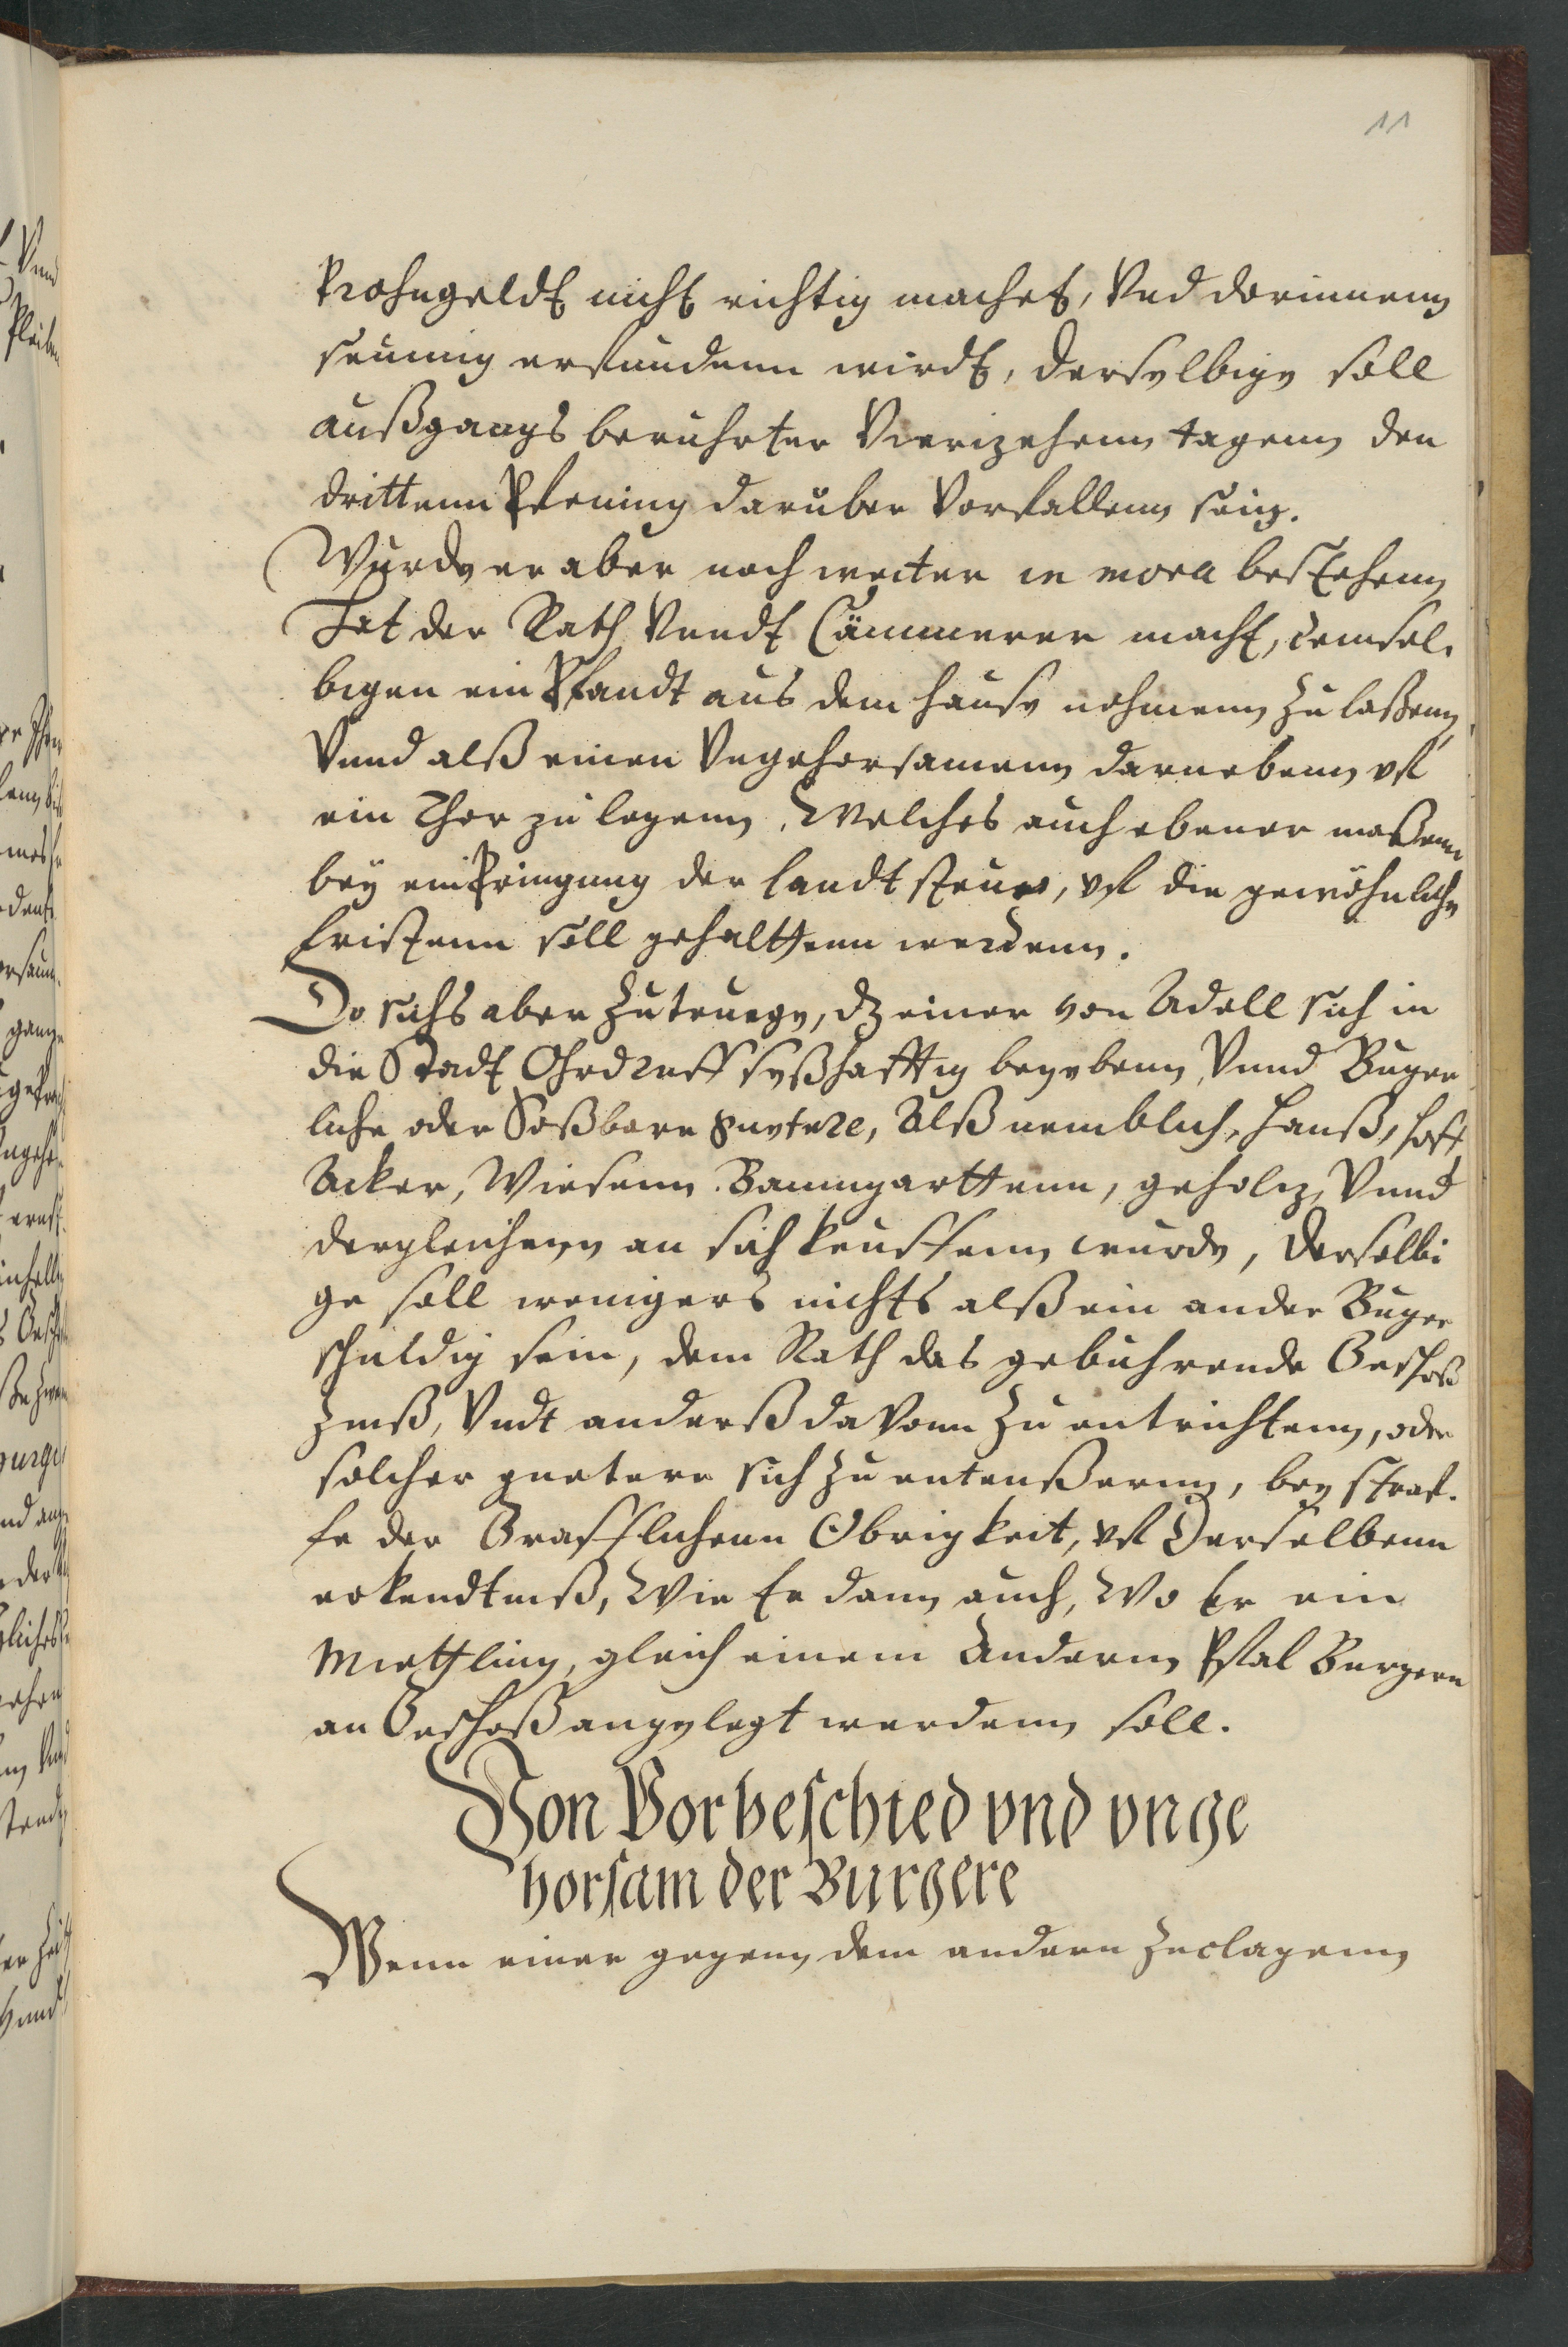 11
Frohngeldt nicht richtig machet, Vnd dorinnenn
seumig erfundenn wirdt, derselbige soll
außgangs beruhrter Vierizehenn tagenn den
drittenn Pfening daruber Vorfallenn sein.
Wurde er aber noch weiter in mora bestehenn
Hat der Rath Vnndt Cämmerer macht, demsel-
bigen ein Pfandt aus dem hause nehmenn zu laßenn,
Vnnd alß einen Vngehorsamenn darnebenn vf
ein Thor zu legenn, Welches auch ebener maßenn
bey einbringung der landt steuer, vf die gewöhnliche
fristenn soll gehalttenn werdenn.
Do sichs aber Zutruege, dz einer von Adell sich in
die Stadt Ohrdruff seßhafftig begebenn, Vnnd Burger
liche oder Soßbare guetere, Alß nemblich, Hauß, hoff
Acker, Wiesenn. Baumgarttenn, geholcz, Vnnd
dergleichenn an sich keuffenn wurde, derselbi
ge soll wenigers nichts alß ein ander Burger
schuldig sein, dem Rath das gebuhrende Geschoß
Zinß, Vndt anderß dauonn Zu entrichtenn, oder
solcher guetere sich Zu enteußernn, bey straf-
fe der Grafflichenn Obrigkeit, vf Derselbenn
erkendtniß, Wie Er dann auch, Wo Er ein
Miettling, gleich einem Andernn Pfal Burgern
an Geschoß angelegt werdenn soll.
Von Vorbeschied vnd vnge
horsam der Burgere
Wenn einer gegenn dem andern Zuclagenn